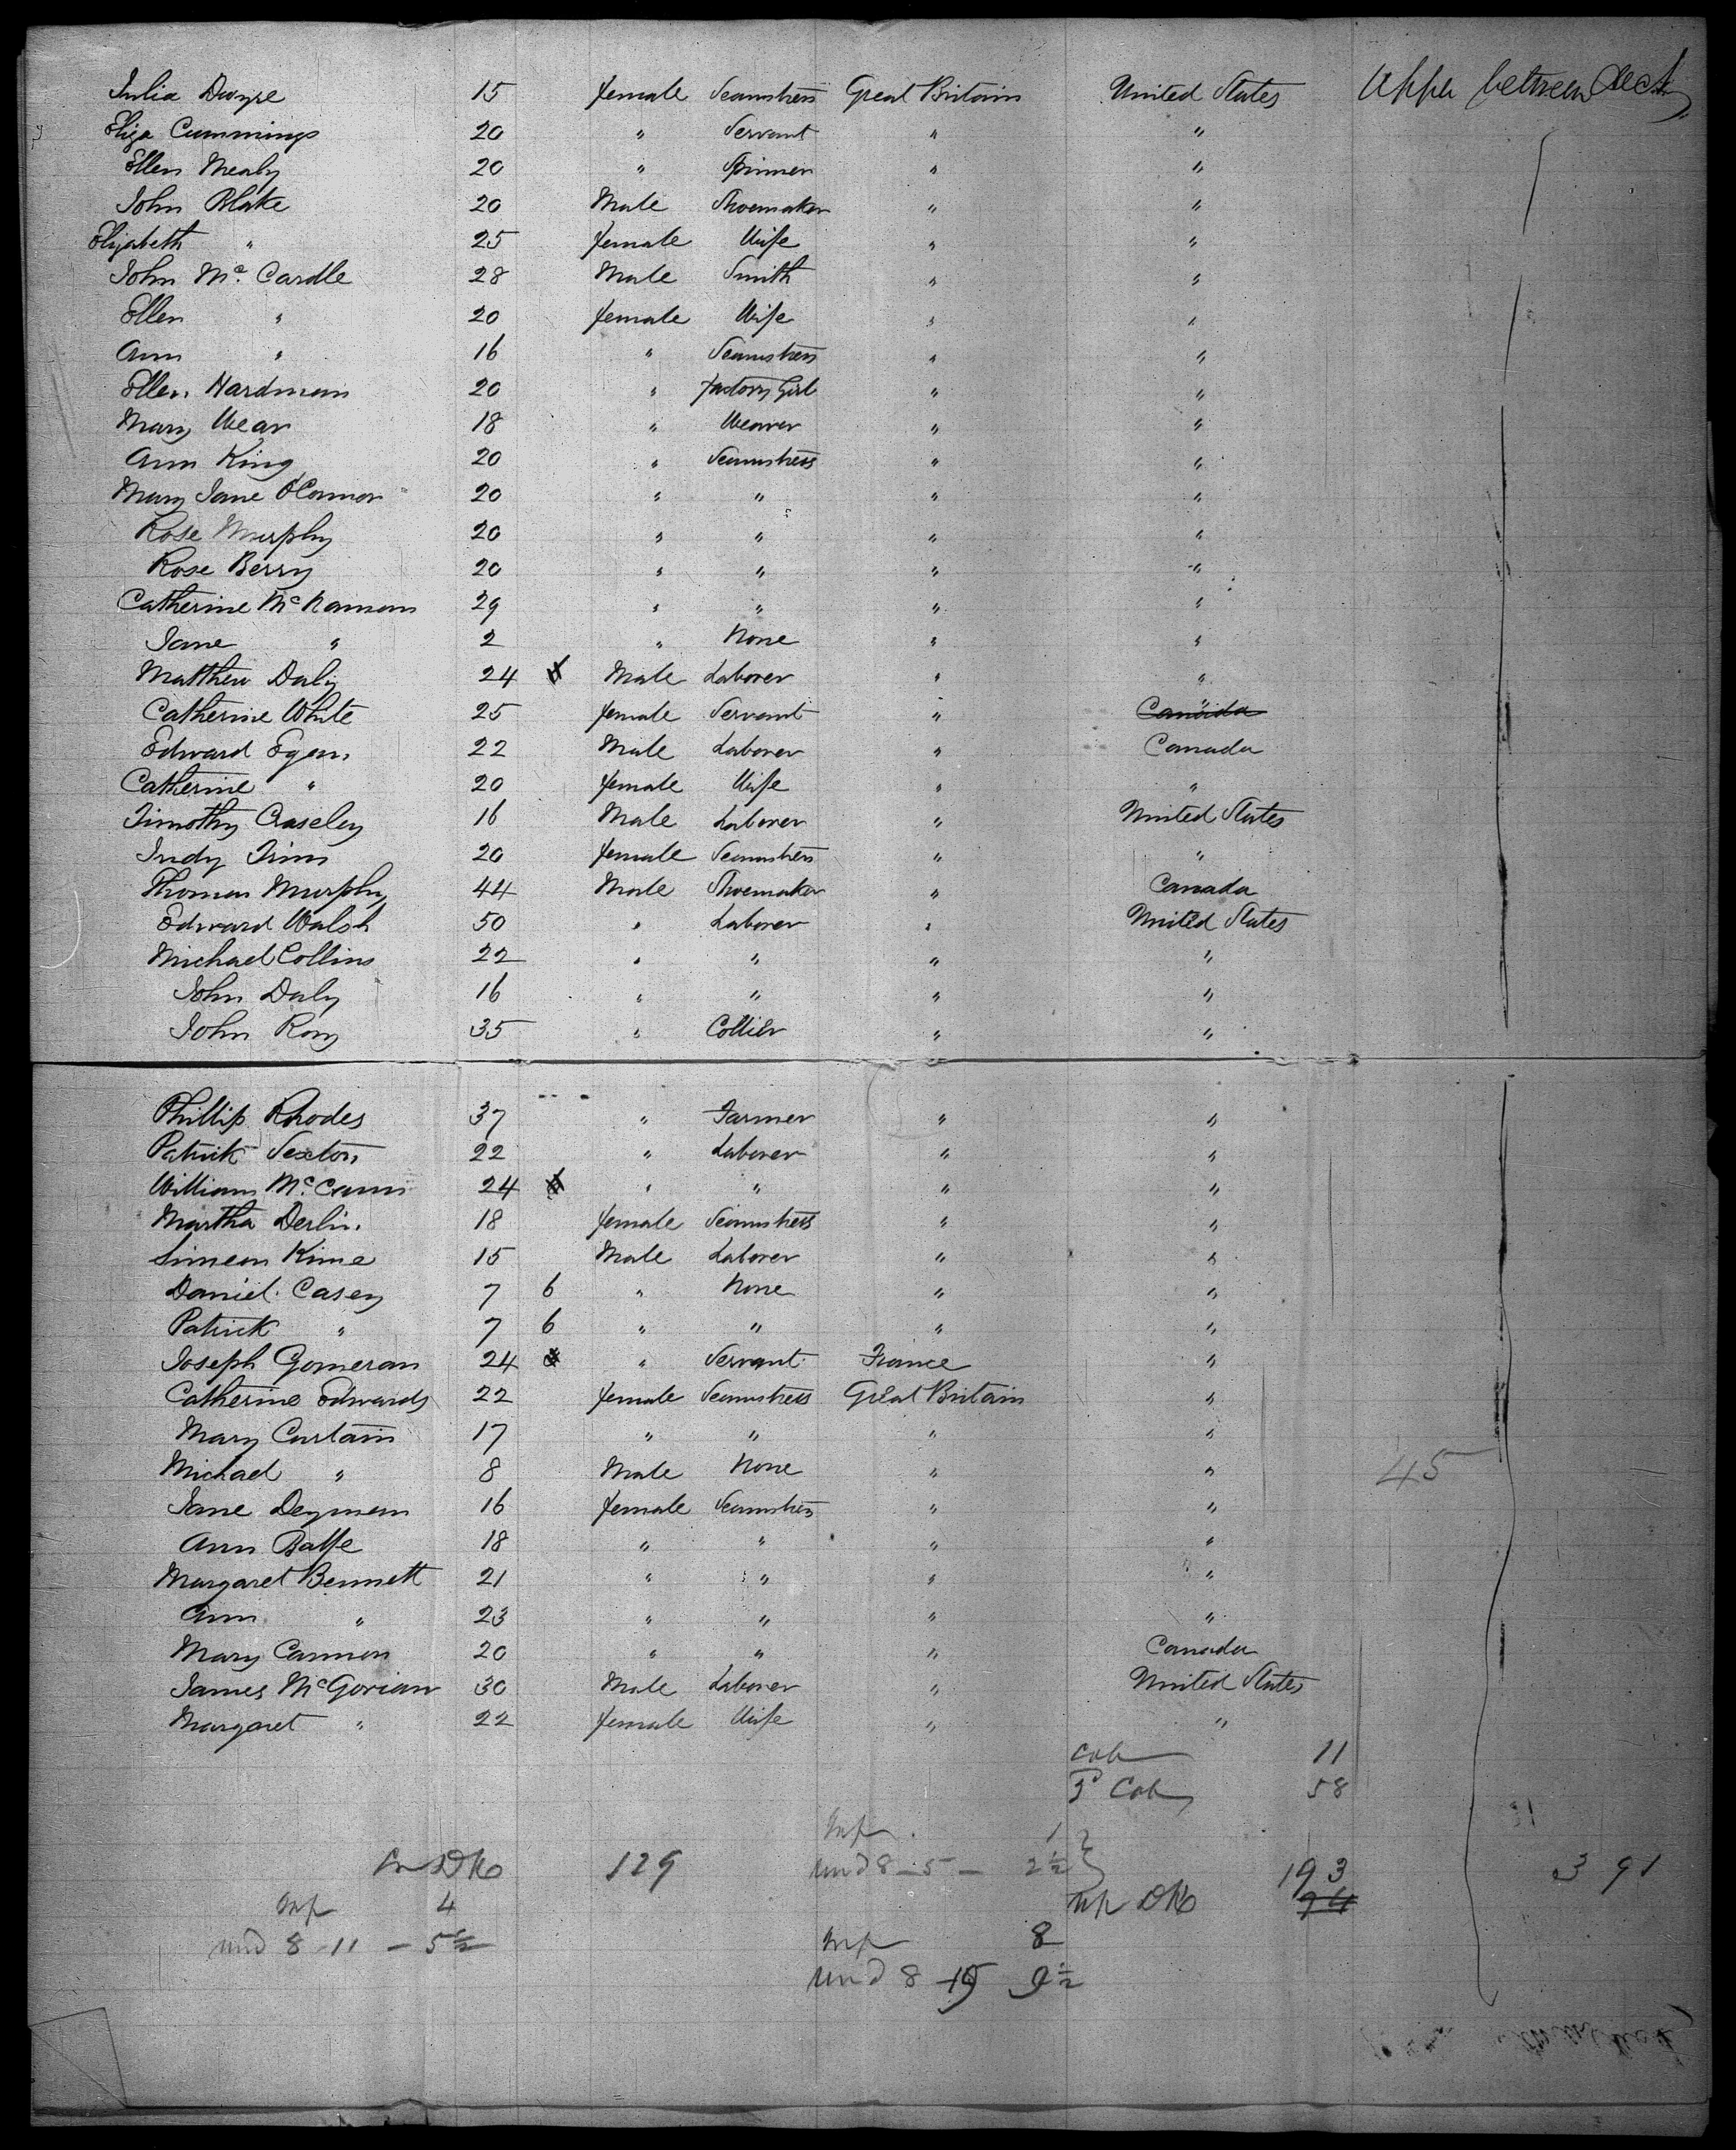 Julia Dwyre 15 female Seamstress Great Britain United States Upper between Deck
Eliza Cummings 20 " Servant " "
Ellen Mealy 20 " Spinner " "
John Blake 20 Male Shoemaker " "
Elizabeth " 25 female Wife " "
John Mc Cardle 28 Male Smith " "
Ellen " 20 female Wife " "
Ann " 16 " Seamstress " "
Ellen Hardman 20 " factory Girl " "
Mary Wear 18 " Weaver " "
Ann King 20 " Seamstress " "
Mary Jane O'Connor 20 " " " "
Rose Murphy 20 " " " "
Rose Berry 20 " " " "
Catherine McNamara 29 " " " "
Jane " 2 " None " "
Matthew Daly 24 Male Laborer " "
Catherine White 25 female Servant " Canada "
Edward Egan 22 Male Laborer " Canada
Catherine " 20 female Wife " "
Timothy Caseley 16 Male Laborer " United States
Judy Tims 20 female Seamstress " "
Thomas Murphy 44 Male Shoemaker " Canada
Edward Walsh 50 " Laborer " United States
Michael Collins 22 " " " "
John Daly 16 " " " "
John Rory 35 " Collier " "
Phillip Rhodes 37 " Farmer " "
Patrick Sexton 22 " Laborer " "
William McCann 24 " " " "
Martha Derlin 18 female Seamstress " "
Simeon Kime 15 Male Laborer " "
Daniel Casey 7 6 " None " "
Patrick " 7 6 " " " "
Joseph Gomeran 24 " Servant France "
Catherine Edwards 22 female Seamstress Great Britain "
Mary Curtain 17 " " " "
Michael " 8 Male None " " 45
Jane Deyman 16 female Seamstress " "
Ann Balfe 18 " " " "
Margaret Bennett 21 " " " "
Ann " 23 " " " "
Mary Cannon 20 " " " Canada
James McGorian 30 Male Laborer " United States
Margaret " 22 female Wife " "
Cab 11
Cab 58
Inf 1
129 und 8 - 5 - 2½ 193 391
Inf 4 94
und 8 - 11 - 5½ Inf 8
und 8 9½